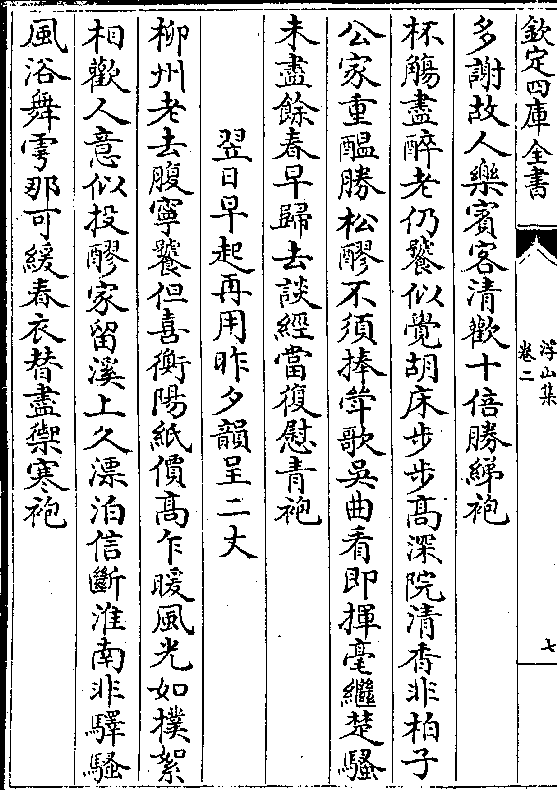 欽定四庫全書
浮山集
卷二
七
多謝故人樂賓客清歡十倍勝綈袍
杯觴盡醉老仍饕似覺胡床步步高深院清香非柏子
公家重醖勝松醪不須捧䇯歌吳曲看即揮毫繼楚騷
未盡餘春早歸去談經當復慰青袍
翌日早起再用昨夕韻呈二丈
柳州老去腹寧饕但喜衡陽紙價高乍暖風光如撲絮
相歡人意似投醪家留溪上久漂泊信斷淮南非驛騷
風浴舞雩那可緩春衣替盡禦寒袍